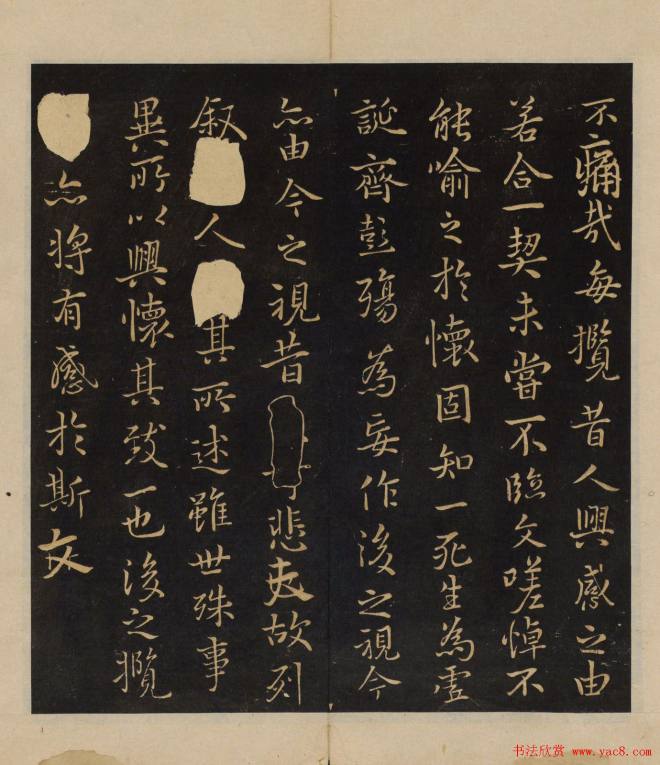 不痛哉每攬昔人興感之由
若合一契未嘗不臨文嗟悼不
能喻之於懷固知一死生為虛
誕齊彭殤為妄作後之視今
亦由今之視昔悲夫故列
叙人其所述雖世殊事
異所以興懷其致一也後之攬
亦將有感於斯文
书法欣赏 www.yac8.com